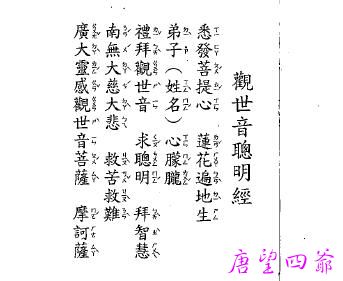 觀世音聰明經
悉發菩提心 蓮花遍地生
弟子(姓名)心朦朧
禮拜觀世音 求聰明 拜智慧
南無大慈大悲 救苦救難
廣大靈感觀世音菩薩 摩訶薩
唐望四爺